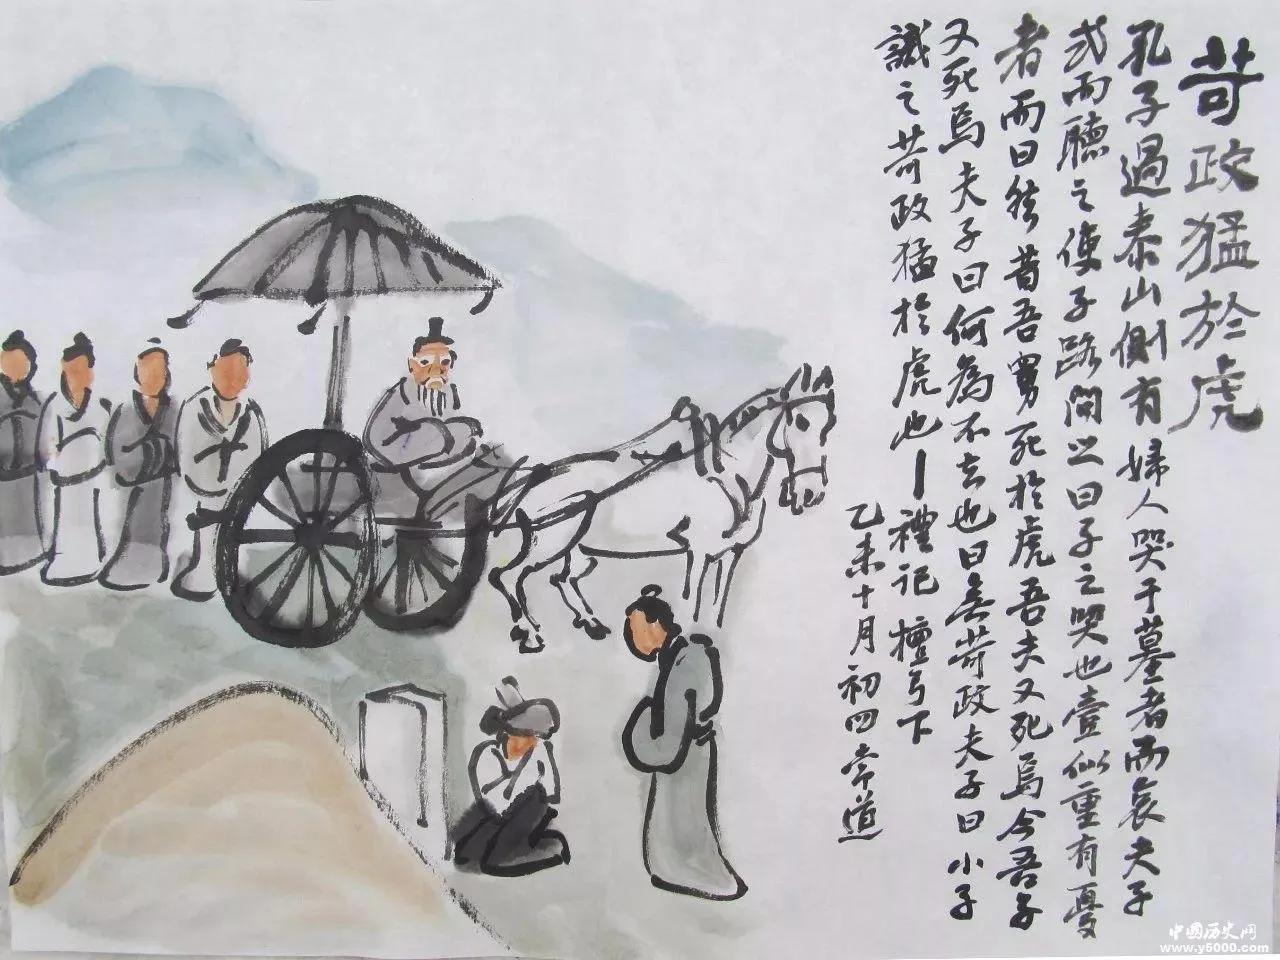 苛政猛於虎
孔子過泰山側有婦人哭于墓者而哀夫子
式而聽之使子路問之曰子之哭也壹似重有憂
者而曰然昔吾舅死於虎吾夫又死焉今吾子
又死焉夫子曰何為不去也曰無苛政夫子曰小子
識之苛政猛於虎也—禮記 檀弓下
乙未十月初四常道
中國历史网
www.y5000.com